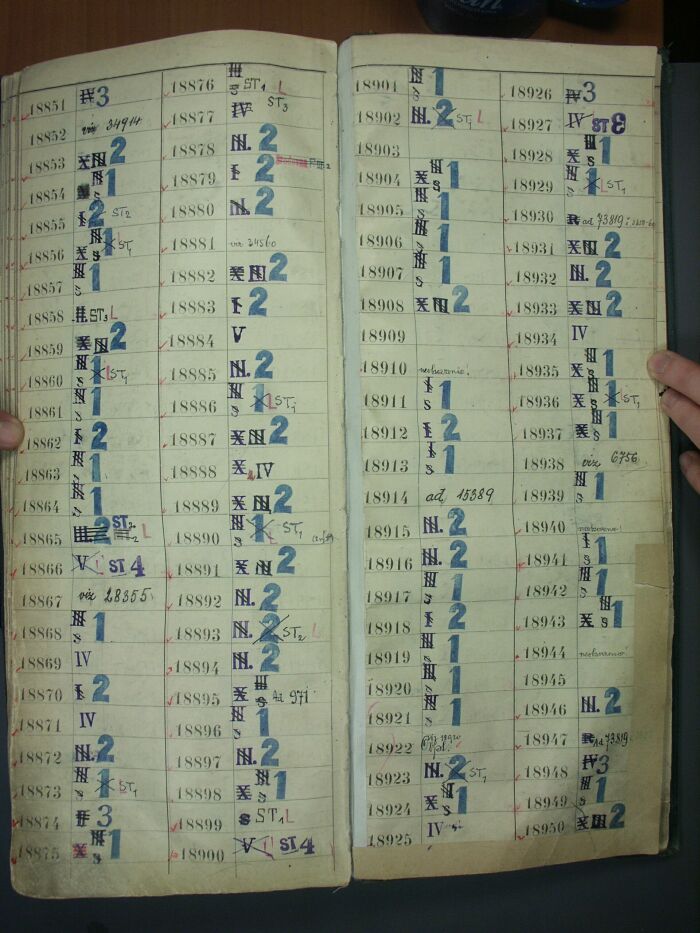 18851 IV 3
18852 viz 34914
18853 X III 2
18854 III s 1
18855 I 2 ST2
18856 X III s 1 X ST1
18857 III s 1
18858 II. ST3 L
18859 X III 2
18860 III s 1 X L ST1
18861 III s 1
18862 I 2
18863 III s 1
18864 III s 1
18865 2 ST2 L
18866 V ST 4
18867 viz 28355
18868 III s 1
18869 IV
18870 I 2
18871 IV
18872 III. 2
18873 III s 1 X ST1
18874 3
18875 X III s 1
18876 III s ST1 L
18877 IV ST3
18878 III. 2
18879 I 2
18880 II. 2
18881 viz 24560
18882 X III 2
18883 I 2
18884 V
18885 III. 2
18886 III s 1 X L ST1
18887 X III 2
18888 X IV
18889 X III 2
18890 III s 1 X L ST1
18891 X III 2
18892 III. 2
18893 III. 2 ST2 L
18894 III. 2
18895 X III s Ad 971
18896 III s 1
18897 III. 2
18898 X III s 1
18899 s ST1 L
18900 V ST4
18901 III s 1
18902 III. 2 X ST1 L
18903
18904 X III s 1
18905 III s 1
18906 III s 1
18907 III s 1
18908 X III 2
18909
18910 neobsazeno!
18911 I s 1
18912 I 2
18913 I s 1
18914 ad 15389
18915 III. 2
18916 III. 2
18917 III s 1
18918 I 2
18919 III s 1
18920 III s 1
18921 III s 1
18922
18923 III. 2 X ST1
18924 X III s 1
18925 IV
18926 IV 3
18927 IV ST3
18928 III s 1
18929 III s 1 X L ST1
18930 R ad 73819
18931 X III 2
18932 III. 2
18933 X III 2
18934 IV
18935 X III s 1
18936 X III s 1 X L ST1
18937 X III s 1
18938 viz 6756
18939 III s 1
18940 neobsazeno!
18941 I s 1
18942 III s 1
18943 X III s 1
18944 neobsazeno!
18945
18946 III. 2
18947 R Ad 73819
18948 IV 3
18949 III s 1
18950 X III 2